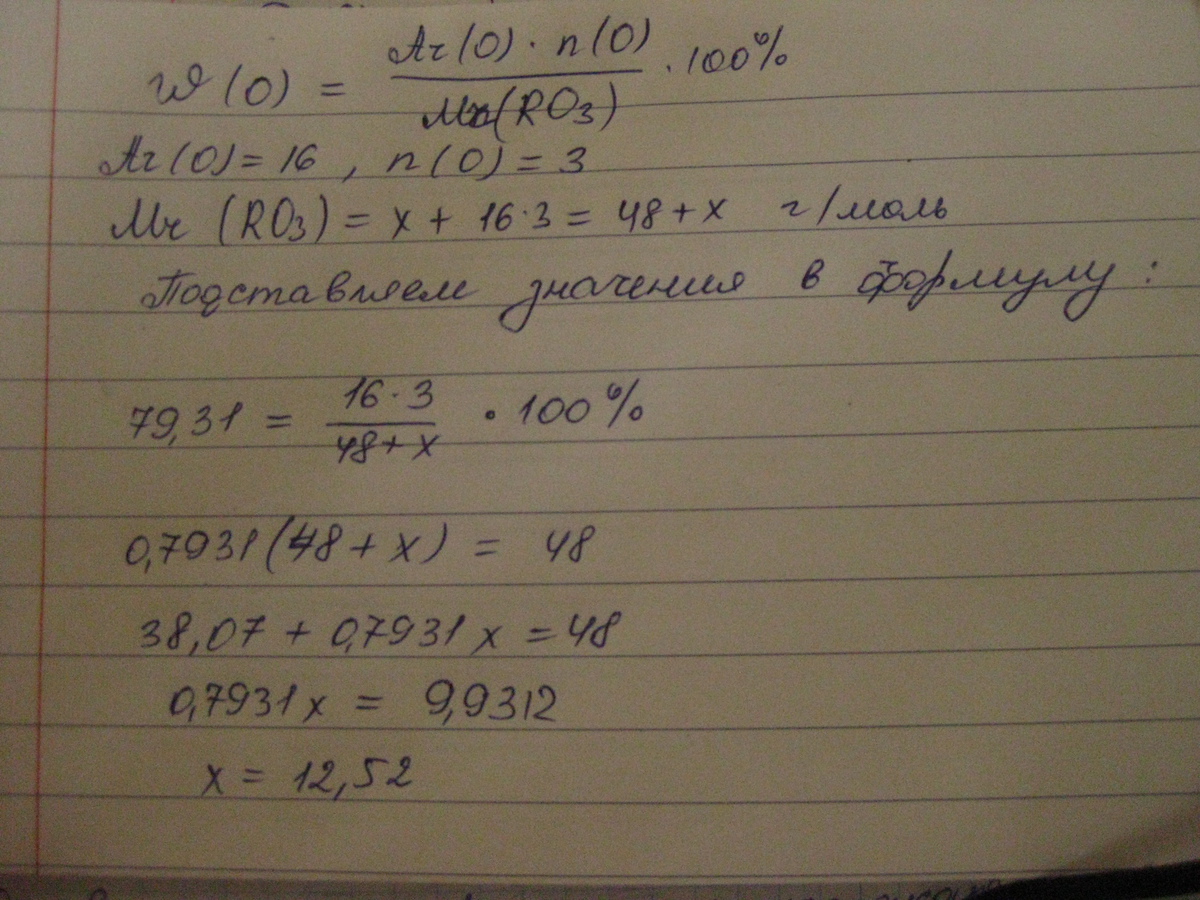 W(O) = Ar(O) · n(O) / Mr(RO3) · 100%
Ar(O) = 16 , n(O) = 3
Mr (RO3) = x + 16·3 = 48 + x г/моль
Подставляем значения в формулу :
79,31 = 16·3 / 48+x · 100%
0,7931(48 + x) = 48
38,07 + 0,7931 x = 48
0,7931 x = 9,9312
x = 12,52